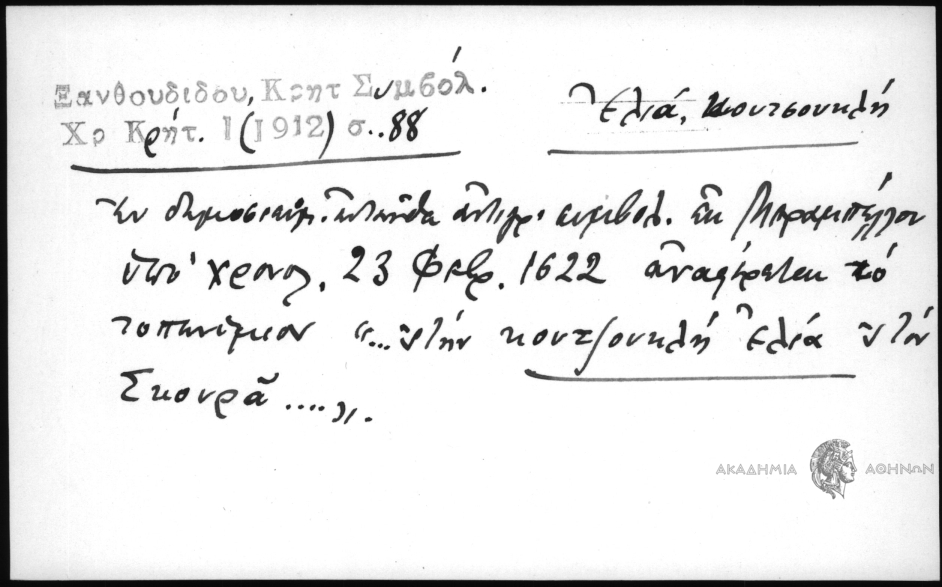 Ξανθουδίδου, Κρητ Συμβόλ.
Χρ Κρήτ. 1 (1912) σ.. 88
Ἐλιά, Κουτσουκλή
Ἐν δημοσιευομ. ἐνταῦθα ἀντιγρ. συμβολ. ἐκ Μιραμπέλλου
ὑπὸ χρονολ. 23 Φεβρ. 1622 ἀναφέρεται τό
τοπωνύμιον "... στὴν κουτζουκλή Ἐλιά στόν
Σκουρᾶ ....".
ΑΚΑΔΗΜΙΑ ΑΘΗΝΩΝ